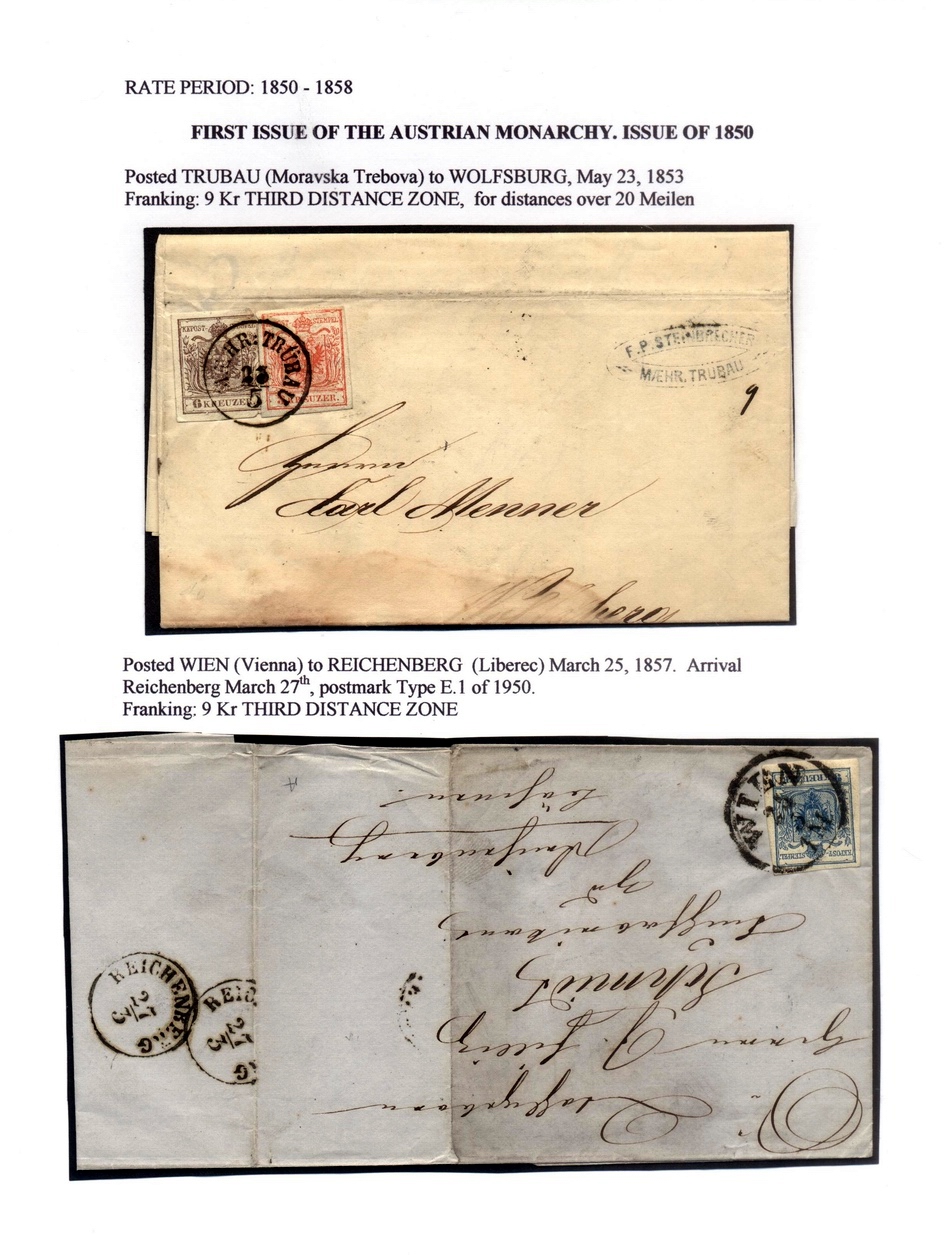 RATE PERIOD: 1850 - 1858
FIRST ISSUE OF THE AUSTRIAN MONARCHY. ISSUE OF 1850
Posted TRUBAU (Moravska Trebova) to WOLFSBURG, May 23, 1853
Franking: 9 Kr THIRD DISTANCE ZONE, for distances over 20 Meilen
KEPOST- STEMPEL
STEMPEL
MÆHR:TRÜBAU
23
5
6 KREUZER
KREUZER.
F.P. STEINBRECHER
MÆHR. TRUBAU
9
Herrn
Karl Menner
Posted WIEN (Vienna) to REICHENBERG (Liberec) March 25, 1857. Arrival
Reichenberg March 27th, postmark Type E.1 of 1950.
Franking: 9 Kr THIRD DISTANCE ZONE
WIEN
KREUZER
KKPOST-STEMPEL
REICHENBERG
27
3
REIC
27
3
G
Herrn
Schmidt